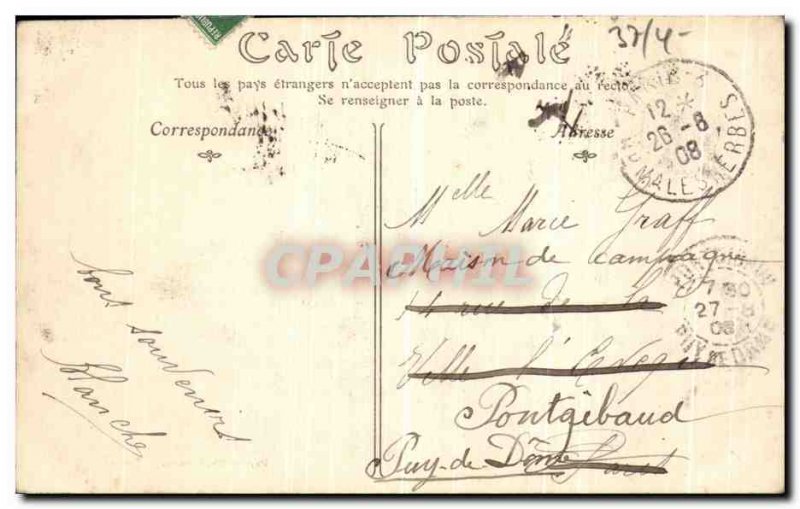 37/4-
Carte Postale
Tous les pays étrangers n'acceptent pas la correspondance au recto
Se renseigner à la poste.
Correspondance
Adresse
12 *
26 - 8
08
MALESHERBES
Melle Marie Graff
Maison de campagne
14 rue de la
Ville l'Evêque
Pontgibaud
Puy-de Dôme Paris
bons souvenirs
Blanche
7 30
27 - 8
08
PUY DE DOME
CPAPHIL